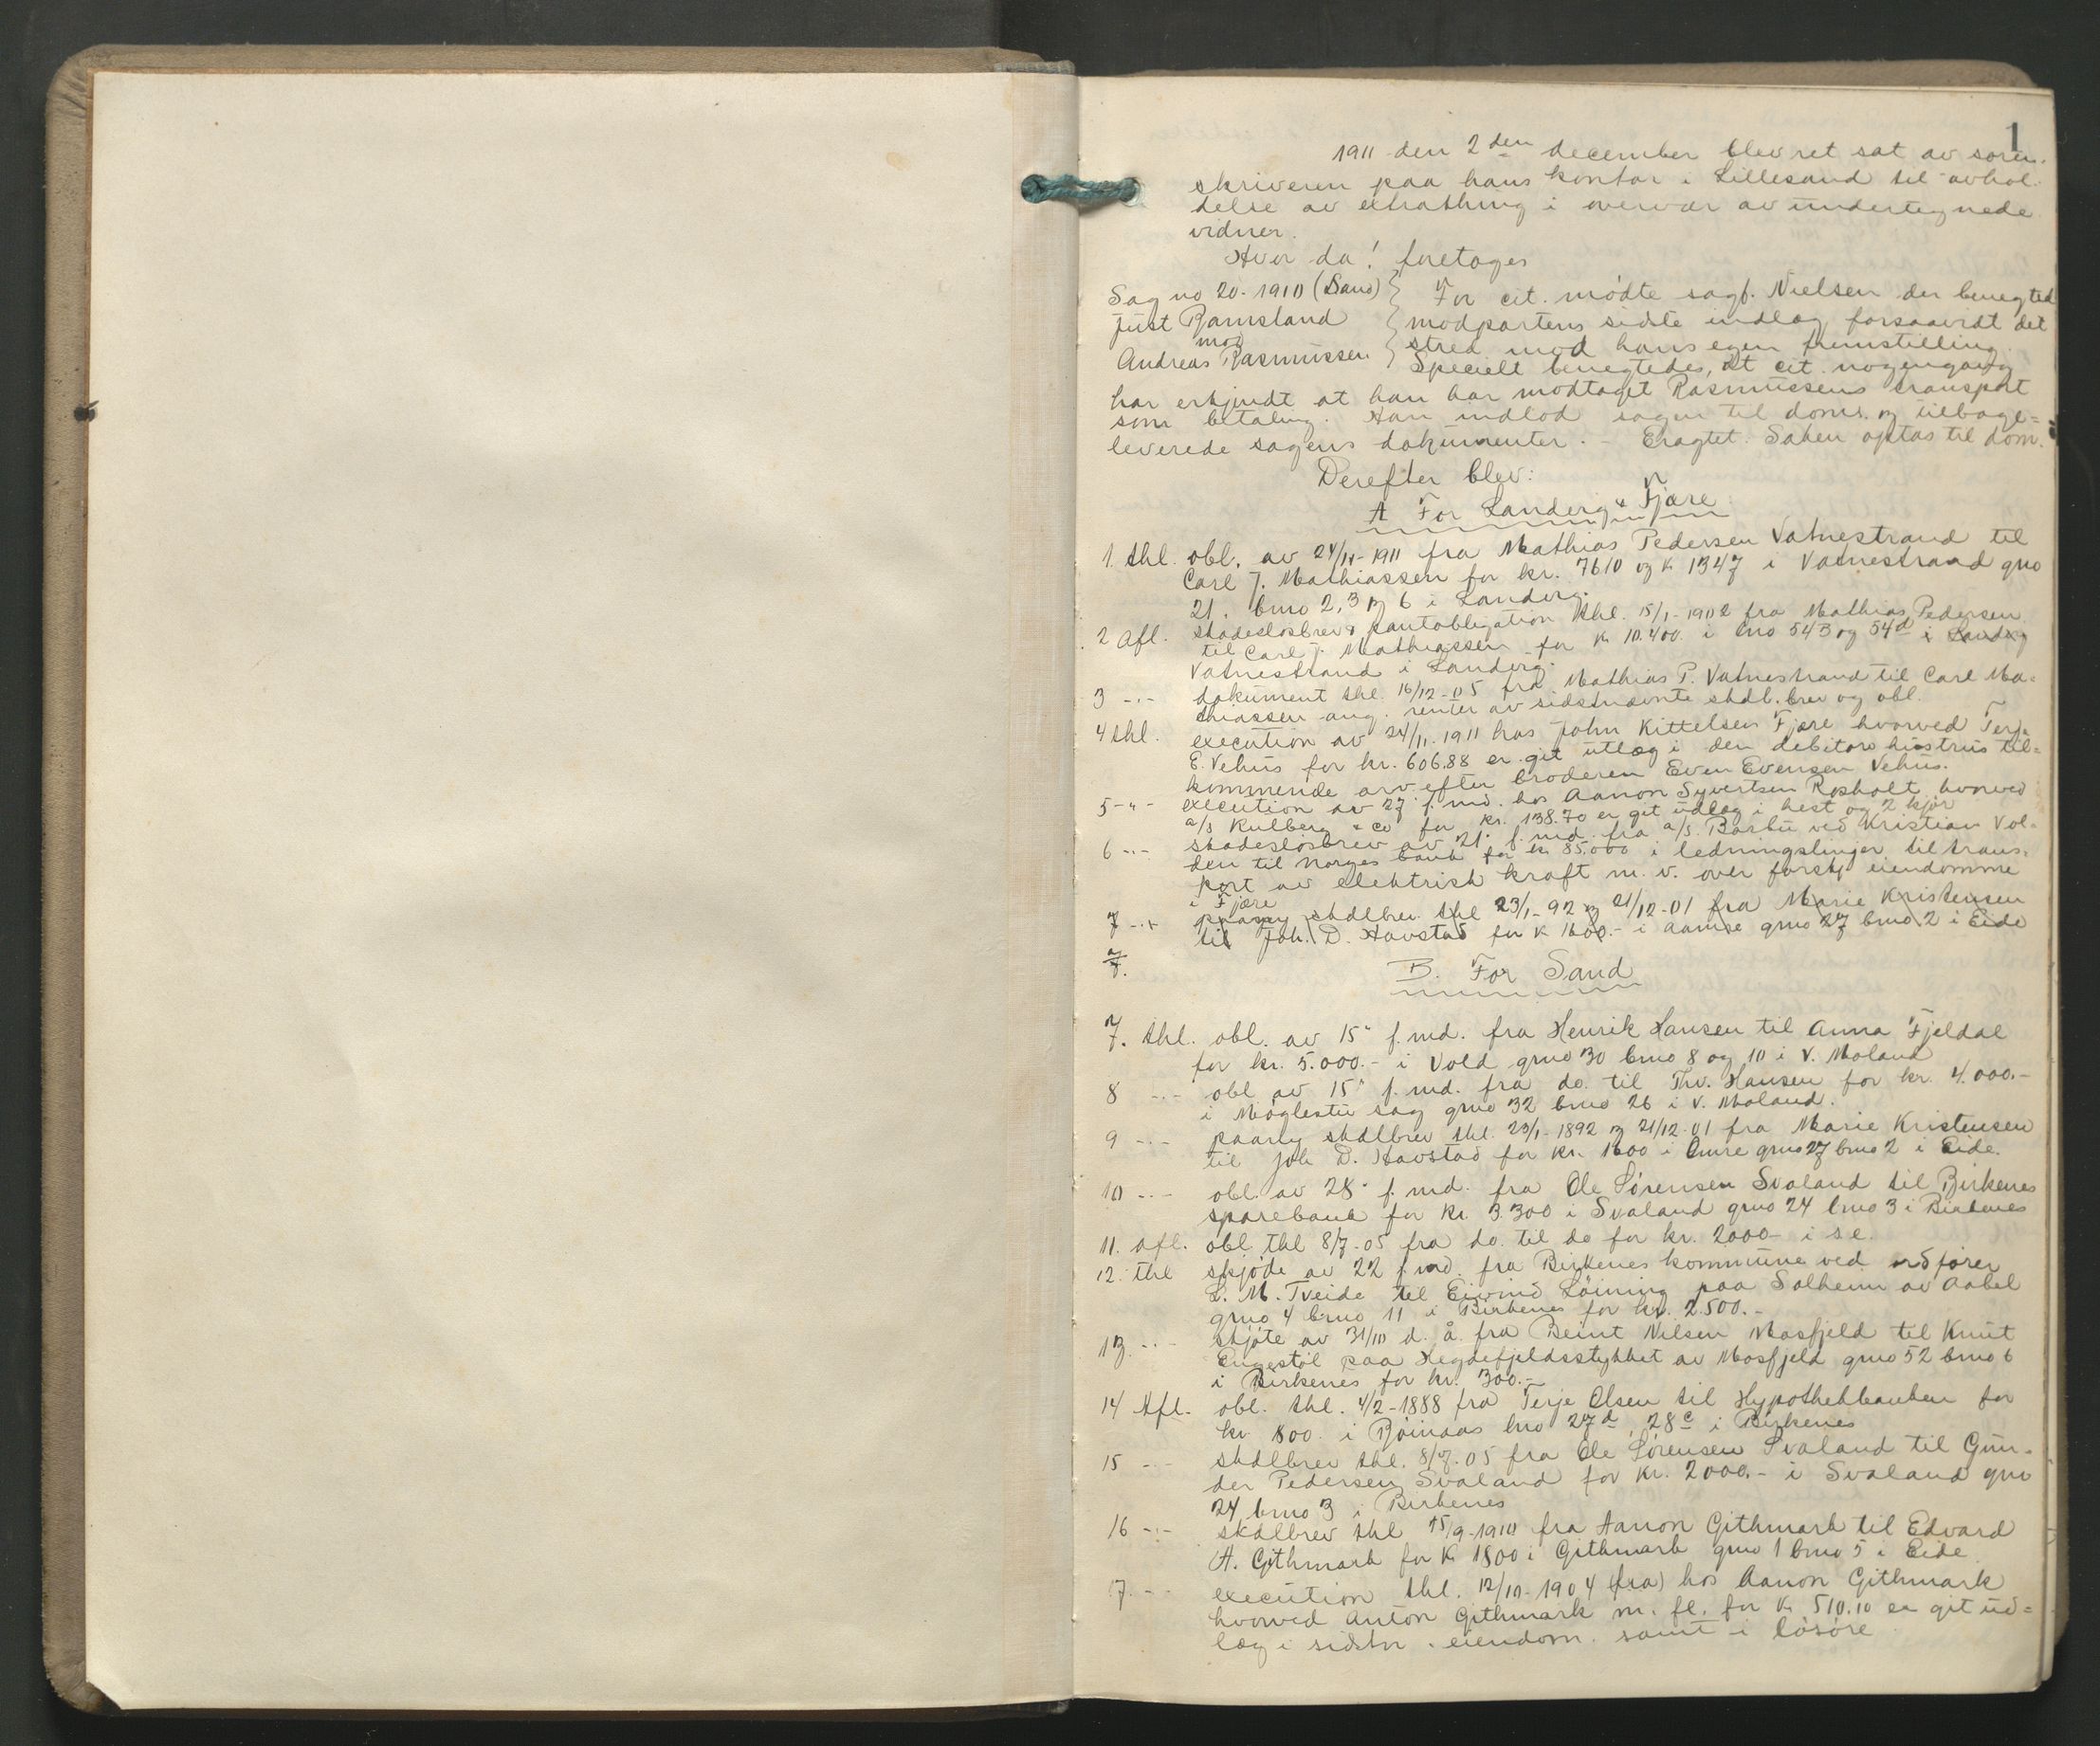 1
1911 den 2den december blev ret sat av soren-
skriveren paa hans kontor i Lillesand til avhol-
delse av extrathing i overvær av undertegnede
vidner.
Hvor da! foretoges
Sag no 20. 1910 (Sand) } For cit. mødte sagf. Nielsen der benegted
Just Bamsland } modpartens sidste indlæg forsaavidt det
mod } stred mod hans egen fremstilling.
Andreas Rasmussen } Specielt benegtedes, at cit. nogengang
har erkjendt at han har modtaget Rasmussens transport
som betaling. Han indlod sagen til doms og tilbage-
leverede sagens dokumenter. - Eragtet: Saken optas til dom.
Derefter blev:
A For Landvig & Fjære
1. thl. obl. av 24/11-1911 fra Mathias Pedersen Vatnestrand til
Carl J. Mathiassen for kr. 7610 og k 1347 i Vatnestrand gno
21. bno 2, 3 og 6 i Landvig.
2 Afl. skadesløsbrev & pantobligation thl. 15/1-1902 fra Mathias Pedersen
til Carl J. Mathiassen for k 10.400. i lno 543 og 54d i Landvig
Vatnestrand i Landvig.
3 -"- dokument thl. 16/12-05 fra Mathias P. Vatnestrand til Carl Ma-
thiassen ang. renter av sidstnævnte skdl.brev og obl.
4 thl. execution av 24/11-1911 hos John Kittelsen Fjære hvorved Terje
E. Vehus for kr. 606.88 er git utlæg i den debitors hustrus til-
kommende arv efter broderen Even Evensen Vehus.
5 -"- execution av 27' f. md. hos Aanon Syvertsen Rosholt hvorved
a/s Kulberg & co for kr. 138.70 er git udlæg i hest og 2 kjør
6 -"- skadesløsbrev av 21' f. md. fra a/s. Barbu ved Kristian Vol-
den til Norges bank for kr 85.000 i ledningslinjer til trans-
port av elektrisk kraft m. v. over forskj eiendomme
i Fjære
7 -"- paany skdlbrev thl 23/1-92 og 21/12-01 fra Marie Kristensen
til Joh. D. Havstad for k 1600.- i Aamre gno 27 bno 2 i Eide
7.
B. For Sand
7. thl. obl. av 15' f. md. fra Henrik Hansen til Anna Fjeldal
for kr. 5.000.- i Vold gno 30 bno 8 og 10 i V. Moland
8 -"- obl av 15' f. md. fra do. til Thv. Hansen for kr. 4.000.-
i Møglestu sag gno 32 bno 26 i V. Moland.
9 -"- paany skdlbrev thl. 23/1-1892 og 21/12-01 fra Marie Kristensen
til Joh D. Havstad for kr. 1600 i Omre gno 27 bno 2 i Eide.
10 -"- obl. av 28' f. md. fra Ole Sørensen Svaland til Birkenes
sparebank for kr. 3.300 i Svaland gno 24 bno 3 i Birkenes
11. afl. obl thl 8/7-05 fra do. til do for kr. 2000- i s.e.
12. thl skjøde av 22 f. md. fra Birkenes kommune ved ordfører
L. M. Tveide til Eivind Løining paa Solheim av Aabel
gno 4 bno 11 i Birkenes for kr. 2.500.-
13. -"- skjøte av 31/10 d. å. fra Beint Nilsen Mosfjeld til Knut
Engestøl paa Hegdefjeldsstykket av Mosfjeld gno 52 bno 6
i Birkenes for kr. 300.-
14 Afl. obl. thl. 4/2-1888 fra Terje Olsen til Hypothekbanken for
kr 800. i Bjoinaas lno 27d, 28c i Birkenes
15 -"- skdlbrev thl. 8/7-05 fra Ole Sørensen Svaland til Gun-
der Pedersen Svaland for kr. 2000.- i Svaland gno
24 bno 3 i Birkenes
16 -"- skdlbrev thl 15/9-1910 fra Aanon Githmark til Edvard
A. Githmark for K 1800 i Githmark gno 1 bno 5 i Eide
17. -"- execution thl. 12/10-1904 (fra) hos Aanon Githmark
hvorved Anton Githmark m. fl. for K 510.10 er git ud-
læg i sidstn. eiendom. samt i løsøre